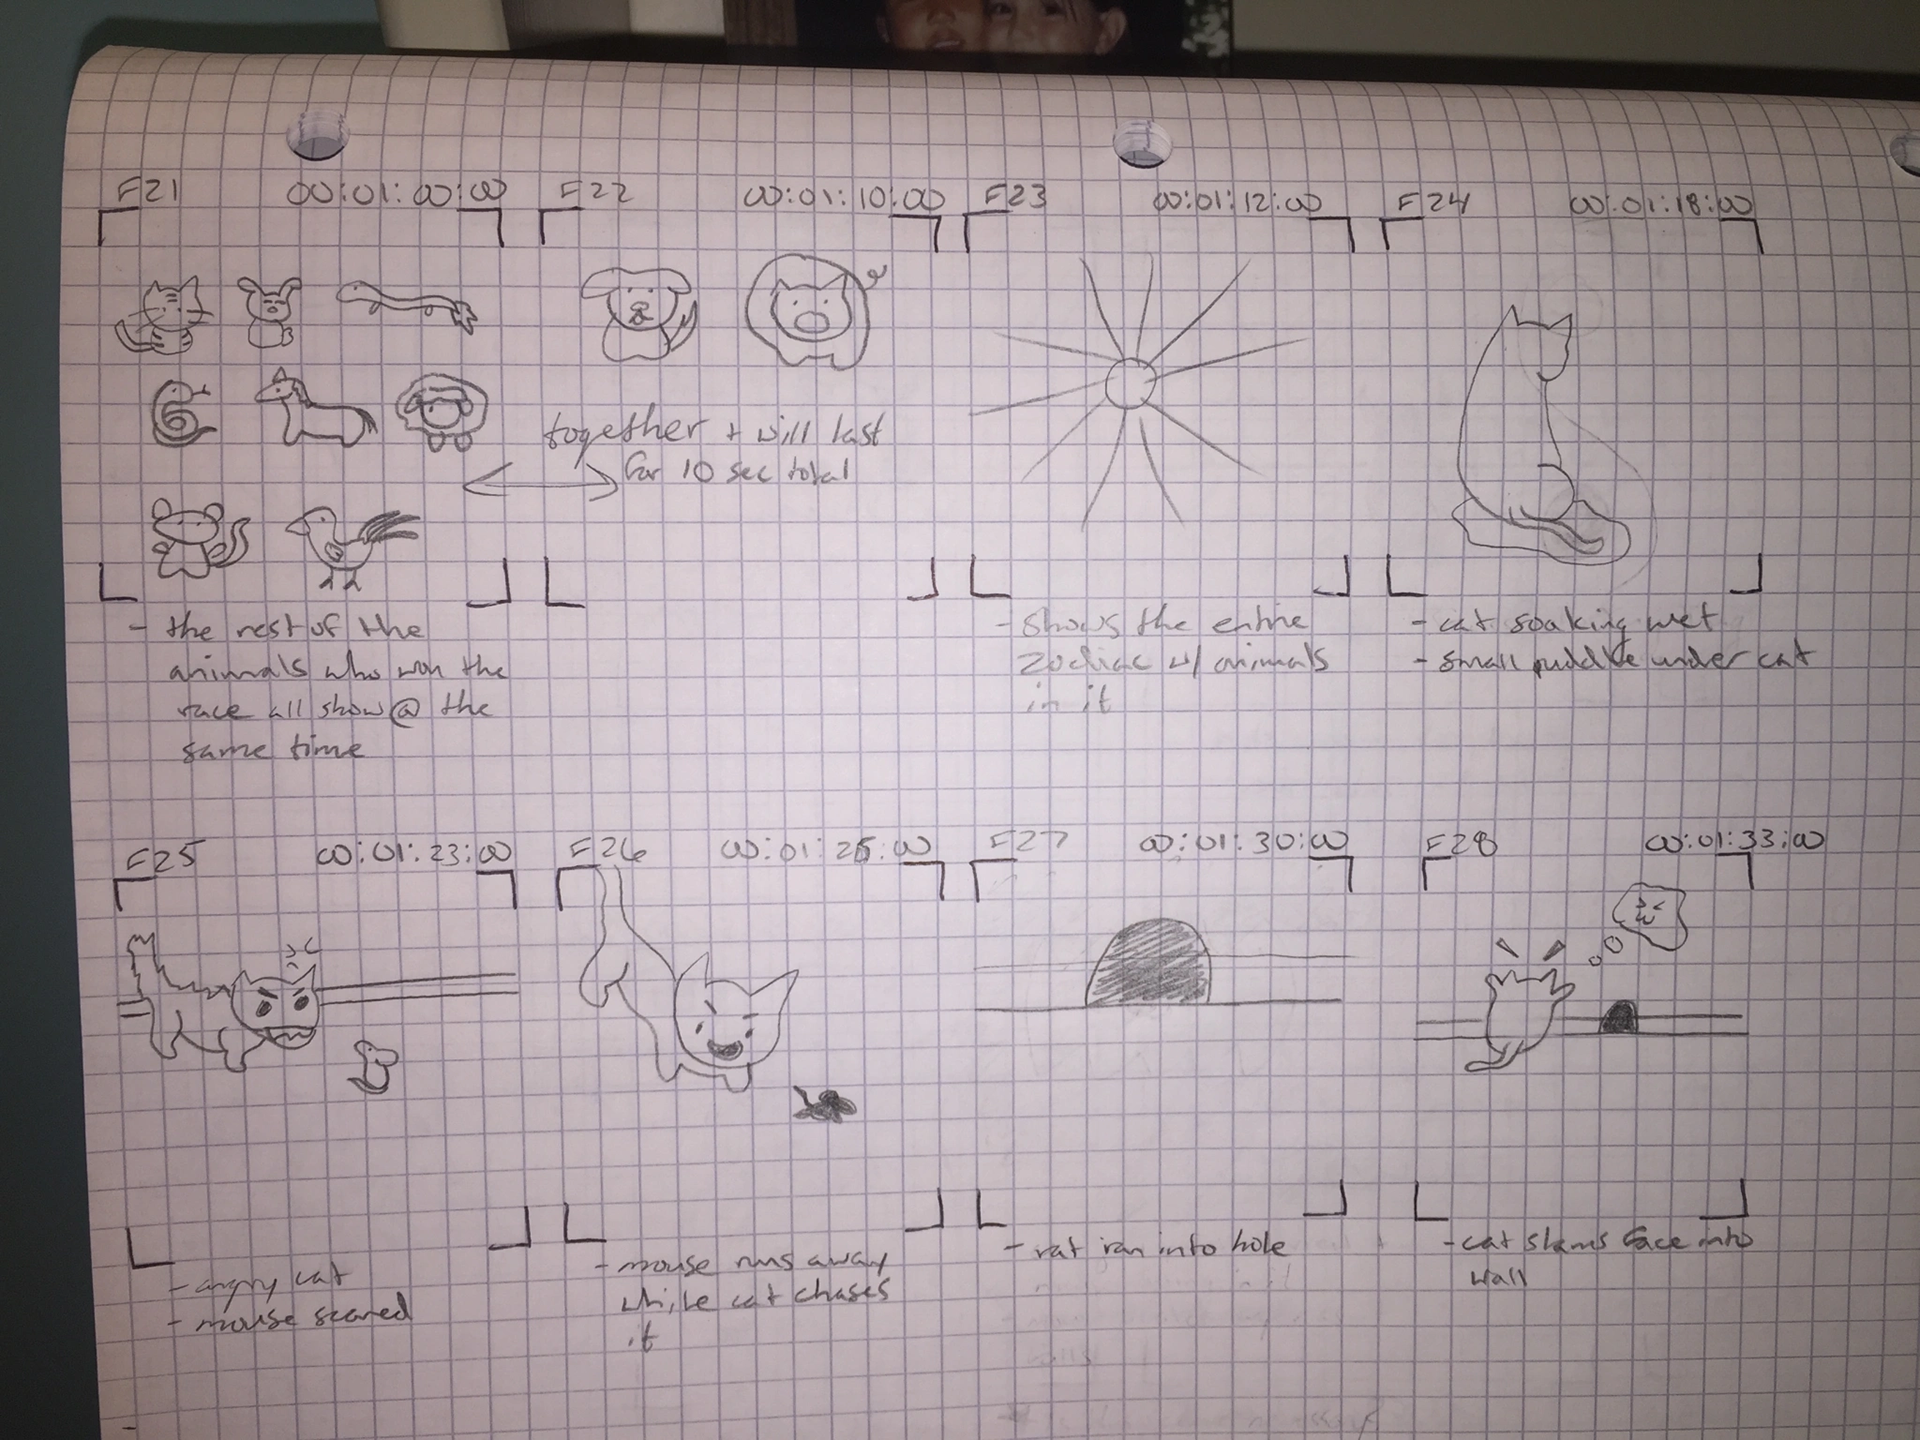 F21 00:01:00:00
F22 00:01:10:00
F23 00:01:12:00
F24 00:01:18:00
together + will last
for 10 sec total
- the rest of the
animals who won the
race all show @ the
same time
- shows the entire
zodiac w/ animals
in it
- cat soaking wet
- small puddle under cat
F25 00:01:23:00
F26 00:01:25:00
F27 00:01:30:00
F28 00:01:33:00
- angry cat
- mouse scared
- mouse runs away
while cat chases
it
- rat ran into hole
- cat slams face into
wall